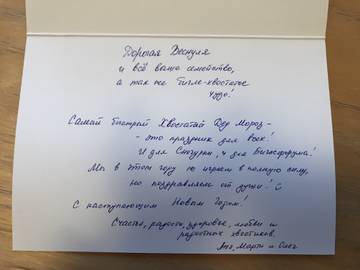 Дорогая Веснуля
и всё ваше семейство,
а так же бигле-хвостатое
чудо!
Самый быстрый Хвостатый Дед Мороз -
- это праздник для всех!
И для Снегурки, и для Биглефорума!
Мы в этом году не играем в полную силу,
но поздравляем от души!
С наступающим Новым Годом!
Счастья, радости, здоровья, любви и
радостных хвостиков.
Марти и Олег